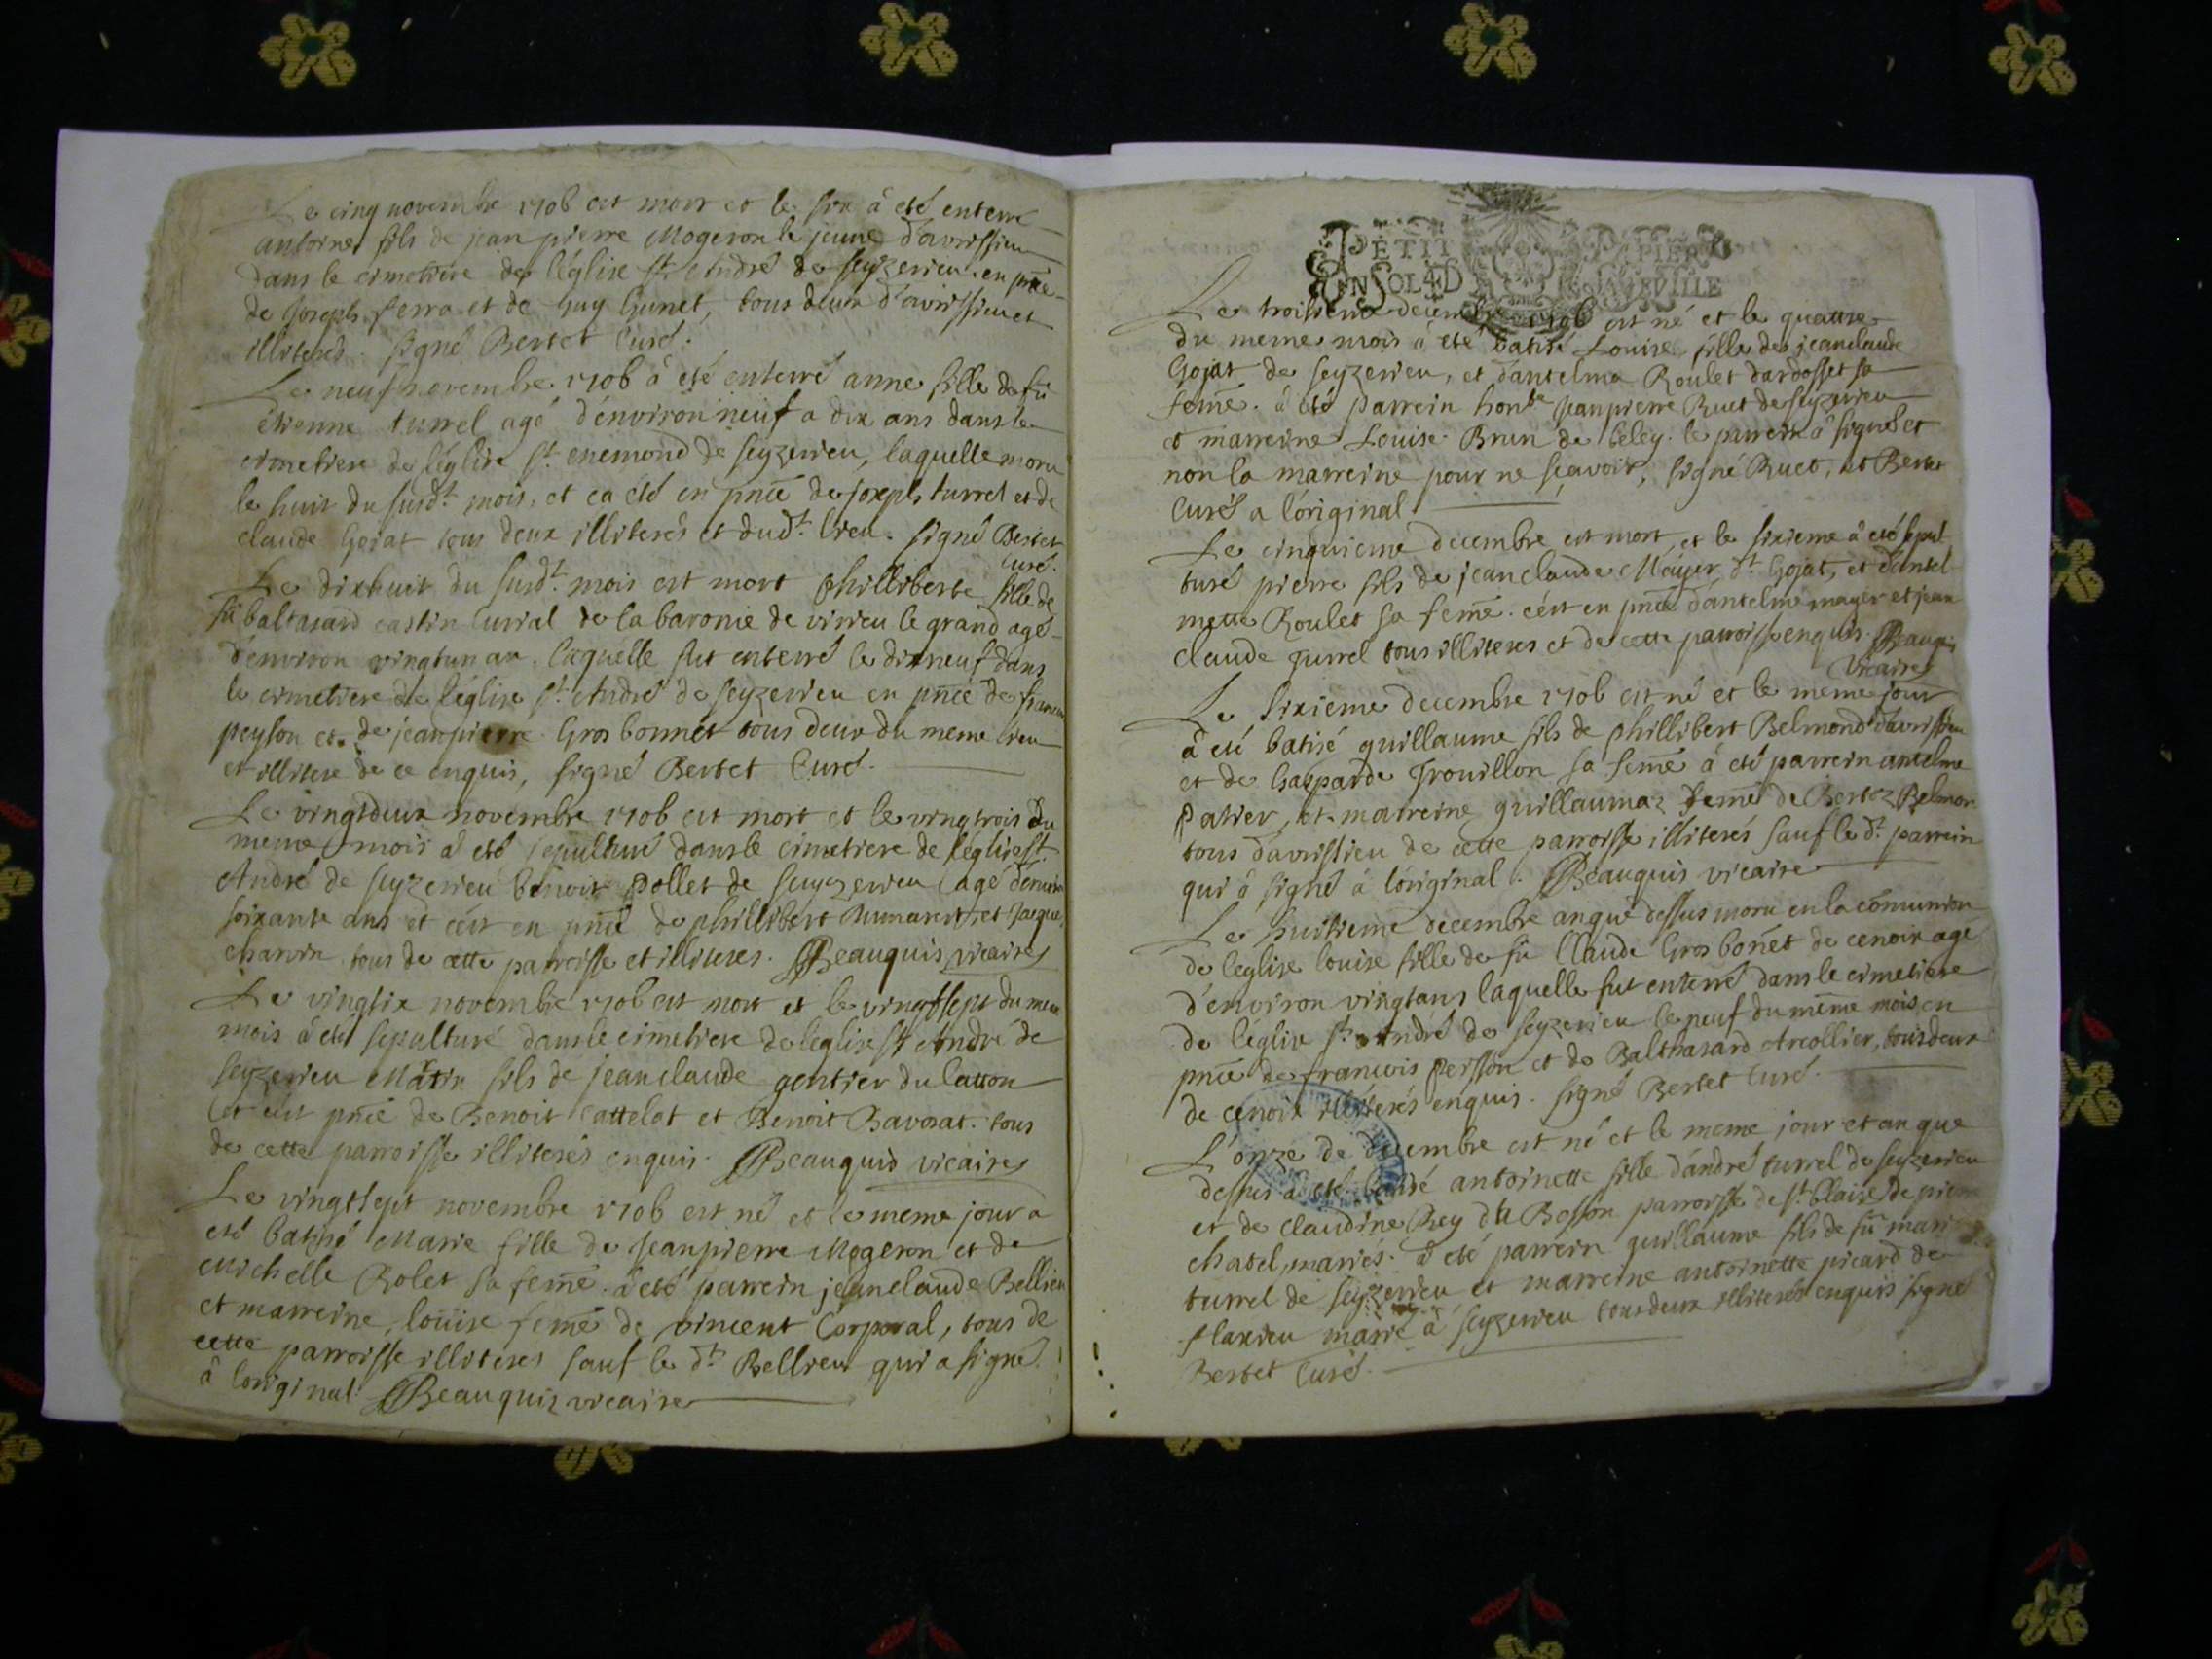 Le cinq novembre 1706 est mort et le six â eté enterré
antoine fils de jean pierre Mogeron le jeune d'avrissieu
dans le cimetiere de l'église st. André de seyzerieu en pnce
de joseph ferra et de Guy Gunet, tous deux d'avrissieu et
illiterés. signé Bertet Curé.
Le neuf novembre 1706 â eté enterré anne fille de fû
étienne turrel agé d'environ neuf a dix ans dans le
cimetiere de l'église st. enemond de seyzerieu, laquelle moru
le huit du susdt. mois, et ca eté en pnce de joseph turrel et de
claude Gojat tous deux illiterés et dudt. lieu. signé Bertet
curé.
Le dixhuit du susdt. mois est mort philliberte fille de
fû baltasard castin curial de la baronie de virieu le grand agé
d'environ vingtun an, laquelle fut enterré le dixneuf dans
le cimetiere de l'église st. André de seyzerieu en pnce de francois
peyson et de jeanpierre Grosbonnet tous deux du meme lieu
et illitere de ce enquis, signé Bertet Curé.
Le vingtdeux novembre 1706 est mort et le vingtrois du
meme mois â eté sepulturé dans le cimetiere de l'église st.
André de seyzerieu benoit Pollet de seyzerieu agé d'environ
soixante ans et c'est en pnce de phillibert et jaque
charvin tous de cette parroisse et illiteres. Beauquis vicaire
Le vingtsix novembre 1706 est mort et le vingtsept du meme
mois â eté sepulturé dans le cimetiere de l'église st. André de
seyzerieu Matin fils de jeanclaude gentier du
et c'est pnce de Benoit cattelot et Benoit Bavosat. tous
de cette parroisse illiterés enquis. Beauquis vicaire
Le vingtsept novembre 1706 est né et le meme jour a
eté batisé Marie fille de jeanpierre Mogeron et de
Michelle Rolet sa feme. â eté parrein jeanclaude Bellieu
et marreine, loüise feme de vincent Corporal, tous de
cette parroisse illiteres sauf le dt. Bellieu qui a signé
â l'original. Beauquis vicaire
PETIT PAPIER
UN SOL 4 D LA FEVILLE
Le troisieme decembre 1706 est né et le quattre
du meme mois â eté batisé Louise fille de jeanclaude
Gojat de seyzerieu, et d'antelma Roulet d'ardosset sa
feme. â eté parrein honble jeanpierre Ruet de seyzerieu
et marreine Louise Brun de beley. le parrein â signé et
non la marreine pour ne sçavoir, signé Ruet, et Bertet
Curé a l'original.
Le cinquieme decembre est mort et le sixieme â eté sepul
turé pierre fils de jeanclaude Mayer dt. Gojat, et d'antel
mette Roulet sa feme. c'est en pnce d'antelme mayer et jean
claude Turrel tous illiteres et de cette parroisse enquis. Beauquis
Vicaire
Le sixieme decembre 1706 est né et le meme jour
â eté batisé guillaume fils de phillibert Belmond d'avrissieu
et de Gasparde Trouillon sa feme â eté parrein antelme
Patier, et marreine guillaumaz feme de Belmon
tous d'avrissieu de cette parroisse illiterés sauf le dt. parrein
qui â signé â l'original. Beauquis vicaire
Le huitieme decembre an que dessus moru en la comunion
de l'eglise louise fille de fû Claude Gros bonet de cenoix agé
d'environ vingtans laquelle fut enterré dans le cimetiere
de l'église st. André de seyzerieu le neuf du même mois en
pnce de francois Persson et de Balthasard Arcollier, tous deux
de cenoix illiterés enquis. signé Bertet Curé.
L'onze de decembre est né et le meme jour et an que
dessus a eté batisé antoinette fille d'andré turrel de seyzerieu
et de claudine Rey du Bosson parroisse de st. blaise de pierre
chatel, mariés. â eté parrein guillaume fils de fû mari
turrel de seyzerieu et marreine antoinette picard de
flaxieu marié â seyzerieu tous deux illiterés enquis signé
Bertet Curé.